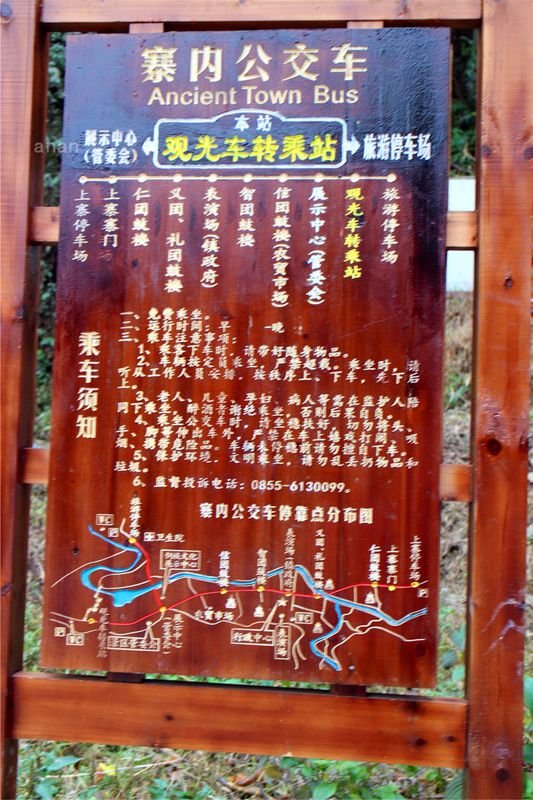 寨内公交车
Ancient Town Bus
本站
展示中心
(管委会)
观光车转乘站
旅游停车场
上寨停车场
上寨寨门
仁团鼓楼
义团、礼团鼓楼
表演场(镇政府)
智团鼓楼
信团鼓楼(农贸市场)
展示中心(管委会)
观光车转乘站
旅游停车场
乘车须知
一、免费乘坐。
二、运行时间：早 -晚
三、乘车注意事项：
1、乘客下车时，请带好随身物品。
2、车辆按定员乘坐，严禁超载。乘坐时，请
听从工作人员安排，按秩序上、下车，先下后
上。
3、老人、儿童、孕妇、病人等需在监护人陪
同下乘坐，醉酒者谢绝乘坐，否则后果自负。
4、乘坐公交车时，请坐稳扶好，切勿将头、
手、脚等伸出车外，严禁在车上嬉戏打闹、吸
烟、携带危险品。车辆未停稳前请勿擅自下车。
5、保护环境，文明乘坐，请勿乱丢扔物品和
垃圾。
6、监督投诉电话：0855-6130099。
寨内公交车停靠点分布图
旅游停车场
WC
P
卫生院
侗族文化
展示中心
信团鼓楼
智团鼓楼
表演场(镇政府)
义团、礼团鼓楼
仁团鼓楼
上寨寨门
上寨停车场
P
观光车转乘站
P
WC
景区管委会
管委会
展示中心
农贸市场
行政中心
表演场
WC